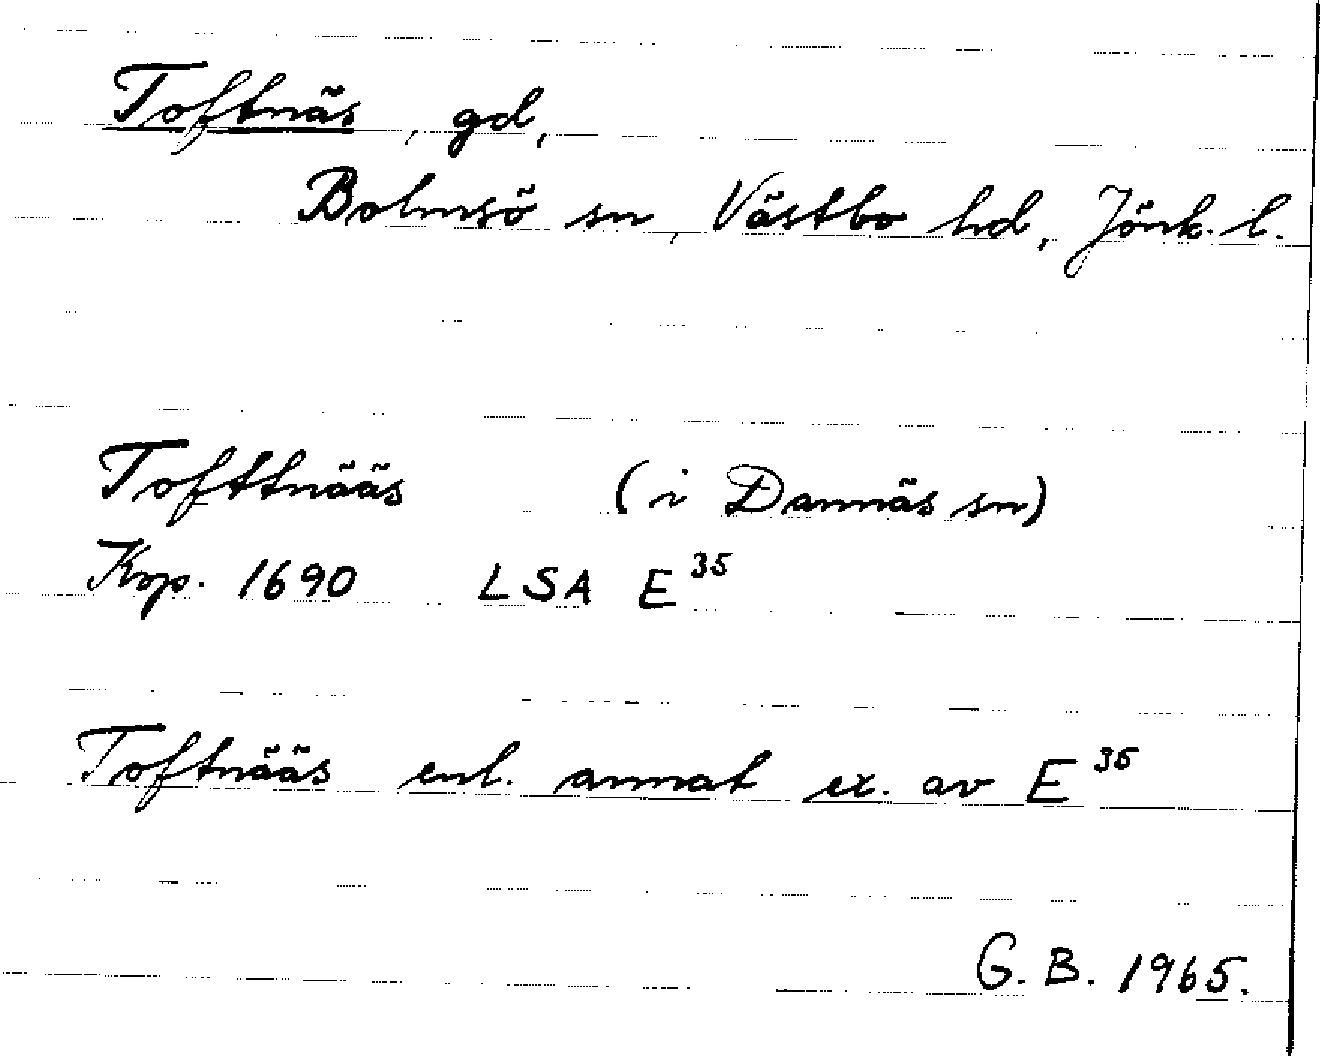 Toftnäs, gd,
Bolmsö sn, Västbo hd, Jönk. l.
Tofttnääs (i Dannäs sn)
Kop. 1690 LSA E³⁵
Toftnääs enl. annat ex. av E³⁵
G. B. 1965.